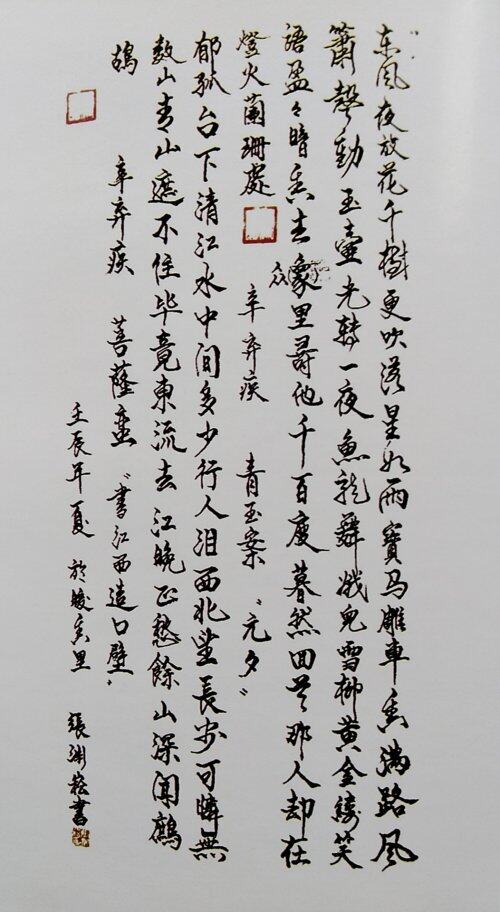 东风夜放花千樹更吹落星如雨寶马雕車香满路风
簫聲動玉壶光转一夜魚龍舞蛾兒雪柳黄金縷笑
語盈々暗香去象里尋他千百度暮然回首那人却在
众
燈火蘭珊處 辛弃疾 青玉案 “元夕”
郁孤台下清江水中间多少行人泪西北望長安可憐無
数山青山遮不住毕竟東流去江晚正愁餘山深闻鹧
鸪 辛弃疾 菩薩蛮 “書江西造口壁”
壬辰年夏 於 里 張渊崧書